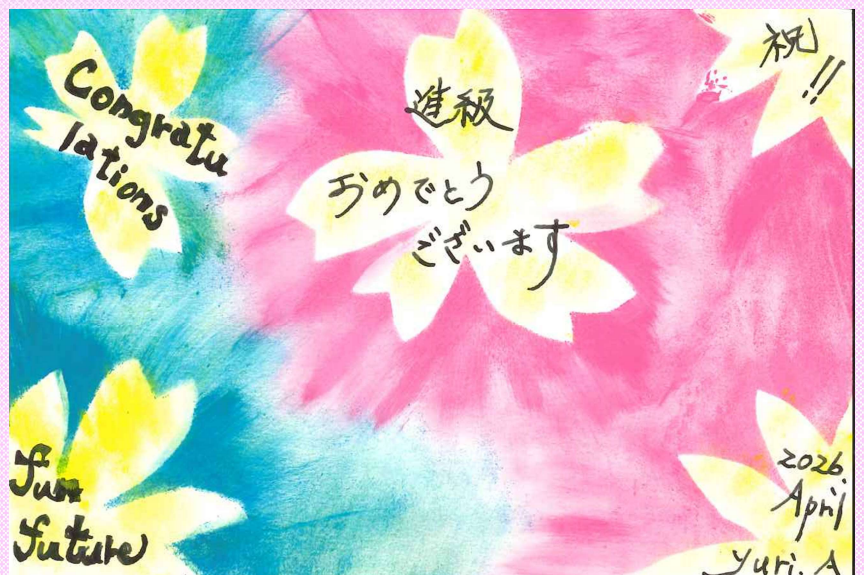 Congratu
lations
進級
おめでとう
ございます
祝!!
fun
future
2026.
April
yuri.A